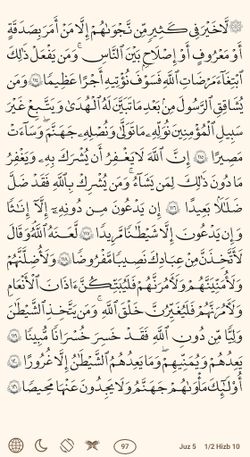 ۞ لَّا خَيْرَ فِى كَثِيرٍ مِّن نَّجْوَىٰهُمْ إِلَّا مَنْ أَمَرَ بِصَدَقَةٍ
أَوْ مَعْرُوفٍ أَوْ إِصْلَٰحٍۭ بَيْنَ ٱلنَّاسِ ۚ وَمَن يَفْعَلْ ذَٰلِكَ
ٱبْتِغَآءَ مَرْضَاتِ ٱللَّهِ فَسَوْفَ نُؤْتِيهِ أَجْرًا عَظِيمًا ١١٤ وَمَن
يُشَاقِقِ ٱلرَّسُولَ مِنۢ بَعْدِ مَا تَبَيَّنَ لَهُ ٱلْهُدَىٰ وَيَتَّبِعْ غَيْرَ
سَبِيلِ ٱلْمُؤْمِنِينَ نُوَلِّهِۦ مَا تَوَلَّىٰ وَنُصْلِهِۦ جَهَنَّمَ ۖ وَسَآءَتْ
مَصِيرًا ١١٥ إِنَّ ٱللَّهَ لَا يَغْفِرُ أَن يُشْرَكَ بِهِۦ وَيَغْفِرُ
مَا دُونَ ذَٰلِكَ لِمَن يَشَآءُ ۚ وَمَن يُشْرِكْ بِٱللَّهِ فَقَدْ ضَلَّ
ضَلَٰلًۢا بَعِيدًا ١١٦ إِن يَدْعُونَ مِن دُونِهِۦٓ إِلَّآ إِنَٰثًا
وَإِن يَدْعُونَ إِلَّا شَيْطَٰنًا مَّرِيدًا ١١٧ لَّعَنَهُ ٱللَّهُ ۘ وَقَالَ
لَأَتَّخِذَنَّ مِنْ عِبَادِكَ نَصِيبًا مَّفْرُوضًا ١١٨ وَلَأُضِلَّنَّهُمْ
وَلَأُمَنِّيَنَّهُمْ وَلَءَامُرَنَّهُمْ فَلَيُبَتِّكُنَّ ءَاذَانَ ٱلْأَنْعَٰمِ
وَلَءَامُرَنَّهُمْ فَلَيُغَيِّرُنَّ خَلْقَ ٱللَّهِ ۚ وَمَن يَتَّخِذِ ٱلشَّيْطَٰنَ
وَلِيًّا مِّن دُونِ ٱللَّهِ فَقَدْ خَسِرَ خُسْرَانًا مُّبِينًا ١١٩
يَعِدُهُمْ وَيُمَنِّيهِمْ ۖ وَمَا يَعِدُهُمُ ٱلشَّيْطَٰنُ إِلَّا غُرُورًا ١٢٠
أُو۟لَٰٓئِكَ مَأْوَىٰهُمْ جَهَنَّمُ وَلَا يَجِدُونَ عَنْهَا مَحِيصًا ١٢١
97 Juz 5 1/2 Hizb 10